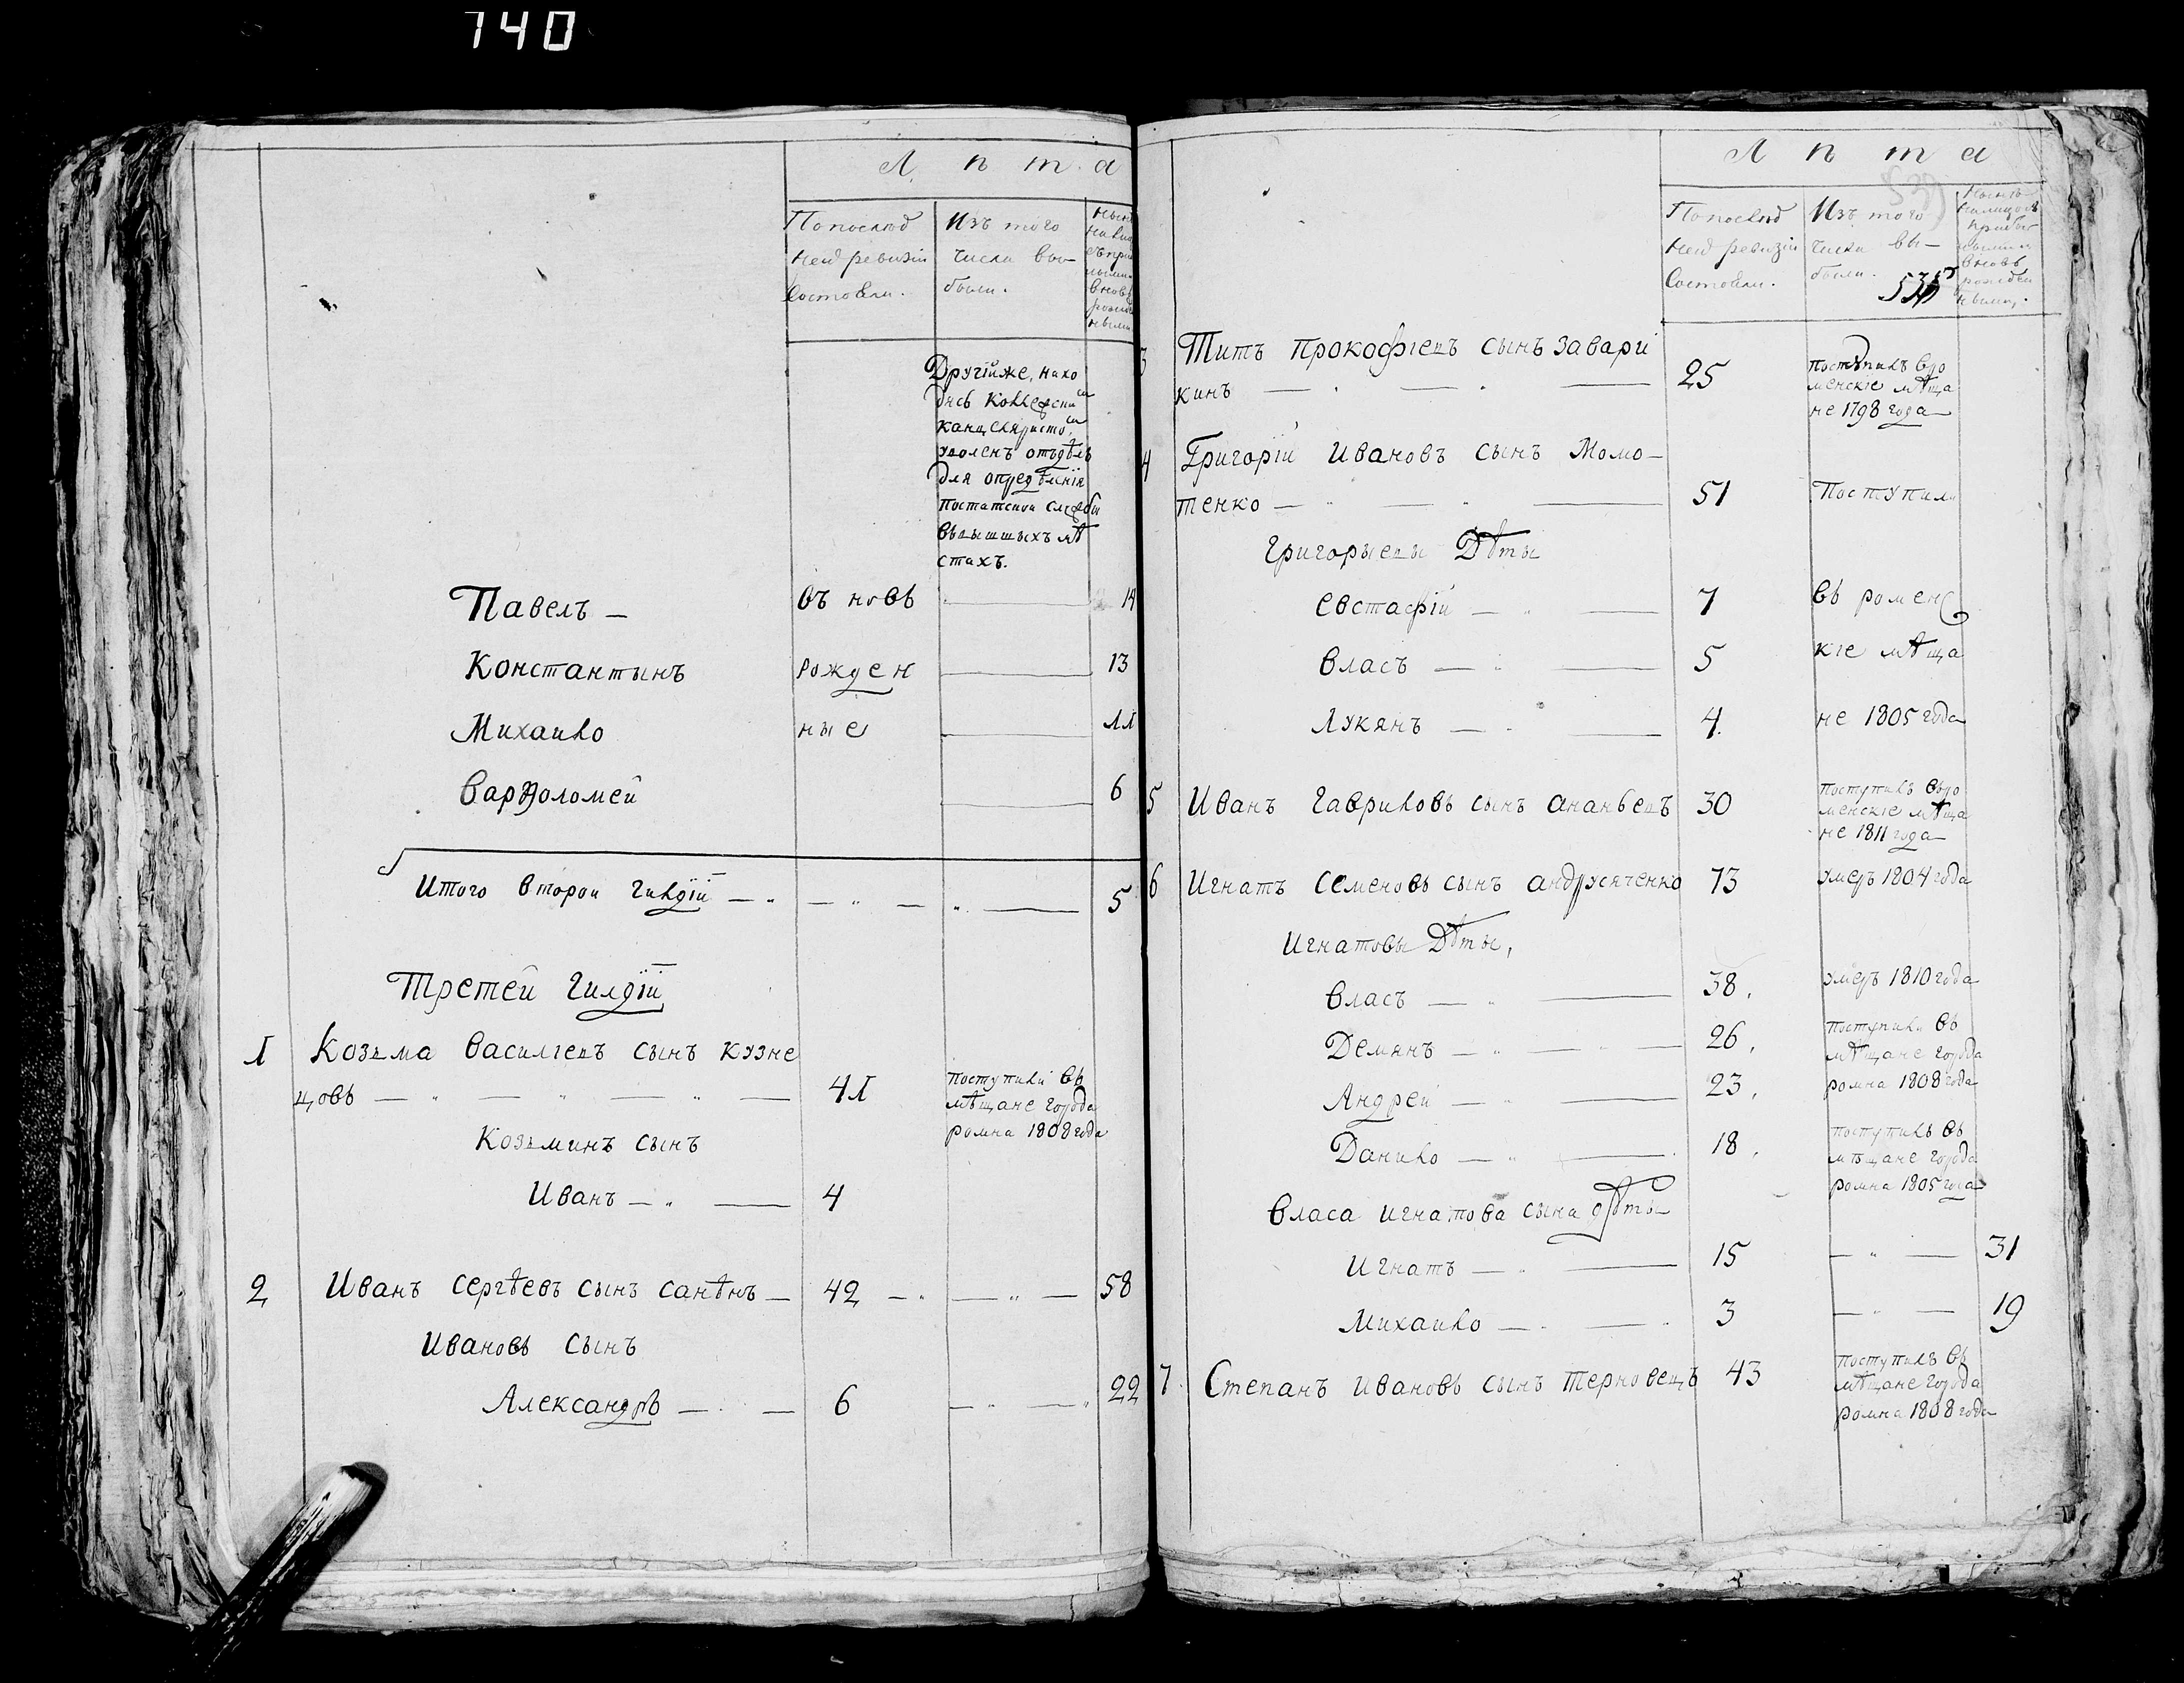 140
Лѣта
По послѣд
ней ревизіи
Состояли.
Изъ того
числа вы-
были.
Другійже, нахо
дясь Коллежски
канцеляристо
уволенъ отъдѣлъ
для опредѣленія
постатской службы
Въвышшыхъ мѣ
стахъ.
Павелъ — въ новь — 14
Константынъ рожден — 13
Михайло ные — 11
Варфоломей — 6
Итого второй гилдіи — „ — „ — „ — 5
Третей гилдіи
1 Козьма Василіевъ сынъ кузне
цовъ — „ — „ — „ — 41 поступили въ
мѣщане города
ромна 1808 года
Козьминъ сынъ
Иванъ — „ — 4
2 Иванъ Сергѣевъ сынъ санѣнъ — 42 — „ — „ — 58
Ивановъ сынъ
Александръ — — 6 — „ — „ 22
Лѣта
По послѣд
ней ревизіи
Состояли.
Изъ того
числа вы-
были.
Нынѣ
налицо съ
прибы
лыми и
вновь
рожден
ными.
3 Титъ Прокофіевъ сынъ Завари
кинъ — „ — „ — 25 поступилъ въро
менскіе мѣща
не 1798 года
4 Григорій Ивановъ сынъ Момо-
тенко — „ — „ — 51 Поступили
Григорьевы Дѣты
Евстафій — „ — 7 въ роменс
Власъ — „ — 5 кіе мѣща
Лукянъ — „ — 4. не 1805 года
5 Иванъ Гавриловъ сынъ Ананьевъ 30 поступилъ въро
менскіе мѣща
не 1811 года
6 Игнатъ Семеновъ сынъ Андрусяченко 73 умеръ 1804 года
Игнатовы Дѣты,
Власъ — „ — 38. умеръ 1810 года
Демянъ — „ — „ — 26. поступили въ
мѣщане города
Андрей — „ — 23. ромна 1808 года
Данило — „ — 18. поступилъ въ
мѣщане города
ромна 1805 года
Власа Игнатова сына дѣты
Игнатъ — „ — 15 — „ — 31
Михайло — „ — „ 3 — „ — 19
7. Степанъ Ивановъ сынъ Терновецъ 43 поступилъ въ
мѣщане города
ромна 1808 года